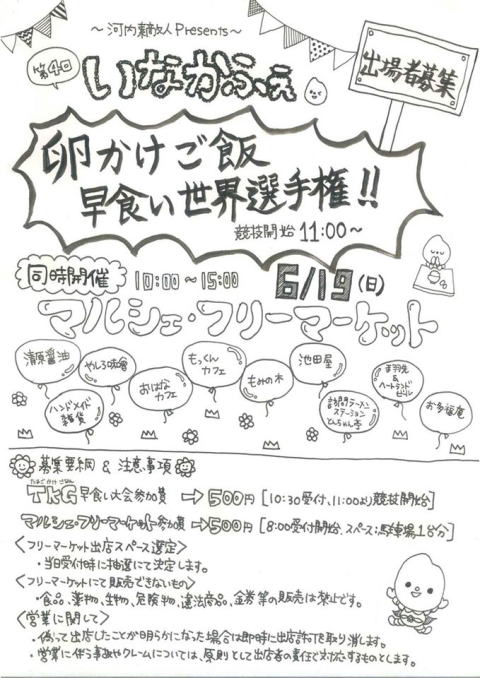 ～河内頼敵人 Presents～
第4回
いなかふぇ
出場者募集
卵かけご飯
早食い世界選手権!!
競技開始 11:00～
同時開催 10:00～15:00 6/19(日)
マルシェ・フリーマーケット
清原醤油
やしろ味噌
おはなカフェ
もっくんカフェ
もみの木
池田屋
ま羽先&ハートランドビール
ハンドメイド雑貨
訪問ラーメンステーションとんちゃん亭
お多福庵
募集要綱 & 注意事項
たまごかけごはん
TKG早食い大会参加費 → 500円 [10:30受付、11:00より競技開始]
マルシェ・フリーマーケット参加費 → 500円 [8:00受付開始、スペース:駐車場1台分]
<フリーマーケット出店スペース選定>
・当日受付時に抽選にて決定します。
<フリーマーケットにて販売できないもの>
・食品、薬物、生物、危険物、違法商品、金券等の販売は禁止です。
<営業に関して>
・偽って出店したことが明らかになった場合は即時に出店許可を取り消します。
・営業に伴う事故やクレームについては、原則として出店者の責任で対応するものとします。